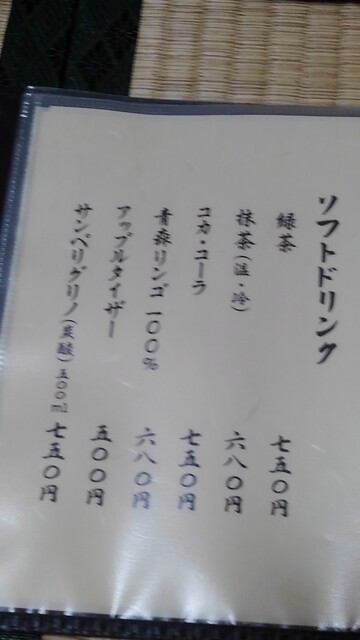 ソフトドリンク
緑茶 七五〇円
抹茶(温・冷) 六八〇円
コカ・コーラ 七五〇円
青森リンゴ一〇〇% 六八〇円
アップルタイザー 五〇〇円
サンペリグリノ(炭酸)五〇〇ml 七五〇円